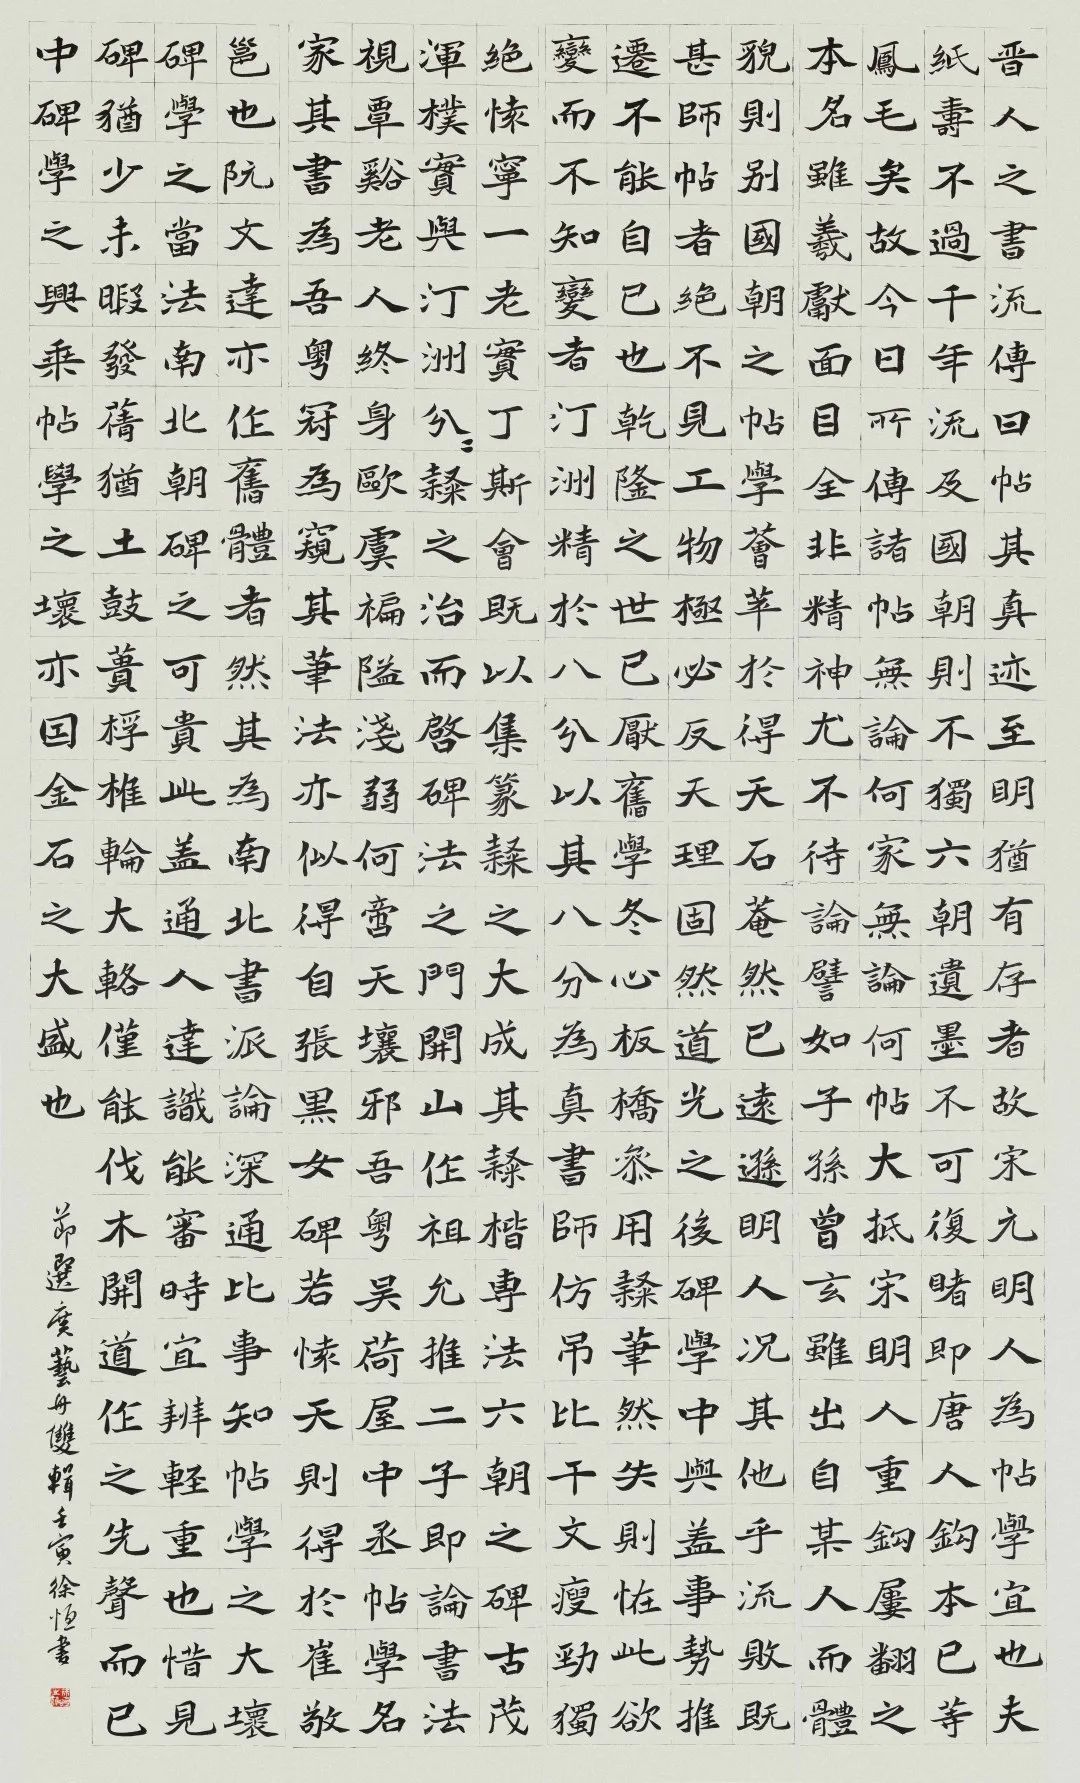 晋人之書流傳曰帖其真迹至明猶有存者故宋元明人為帖學宜也夫
紙壽不過千年流及國朝則不獨六朝遺墨不可復睹即唐人鈎本已等
鳳毛矣故今日所傳諸帖無論何家無論何帖大抵宋明人重鈎屢翻之
本名雖羲獻面目全非精神尤不待論譬如子孫曾玄雖出自某人而體
貌則别國朝之帖學薈萃於得天石菴然已遠遜明人况其他乎流敗既
甚師帖者絶不見工物極必反天理固然道光之後碑學中興盖事勢推
遷不能自已也乾隆之世已厭舊學冬心板橋叅用隸筆然失則怪此欲
變而不知變者汀洲精於八分以其八分為真書師仿吊比干文瘦勁獨
絶懐寧一老實丁斯會既以集篆隸之大成其隸楷専法六朝之碑古茂
渾樸實與汀洲分隸之治而啓碑法之門開山作祖允推二子即論書法
視覃谿老人終身歐虞褊隘淺弱何啻天壤邪吾粤吴荷屋中丞帖學名
家其書為吾粤冠為窺其筆法亦似得自張黑女碑若懐天則得於崔敬
邕也阮文達亦作舊體者然其為南北書派論深通比事知帖學之大壞
碑學之當法南北朝碑之可貴此盖通人達識能審時宜辨輕重也惜見
碑猶少未暇發蒨猶土鼓蕢桴椎輪大輅僅能伐木開道作之先聲而已
中碑學之興乘帖學之壞亦因金石之大盛也
節選廣藝舟雙輯壬寅徐恒書